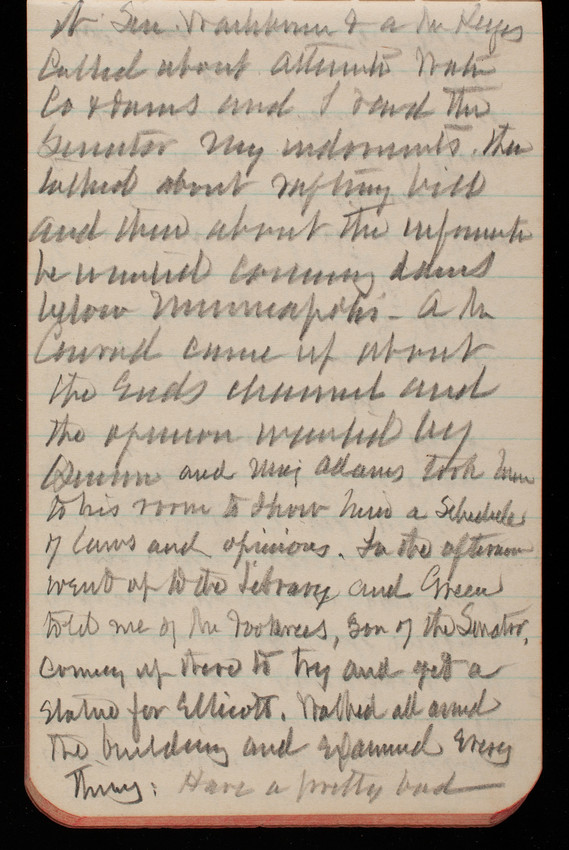 Sen. Washburn & a Mr Keyes
Called about Water
Co & dams and I read the
Senator my indorsements. then
talked about rafting bill
and then about the information
he wanted concerning dams
below Minneapolis - A Mr
Conrad came up about
the Eads channel and
the opinion wanted by
Quinn and Maj Adams took him
to his room to show him a schedule
of laws and opinions. In the afternoon
went up to the Library and Green
told me of Mr Voorhees, son of the Senator,
coming up there to try and get a
statue for Ellicott. Walked all around
the building and examined every
thing. Have a pretty bad